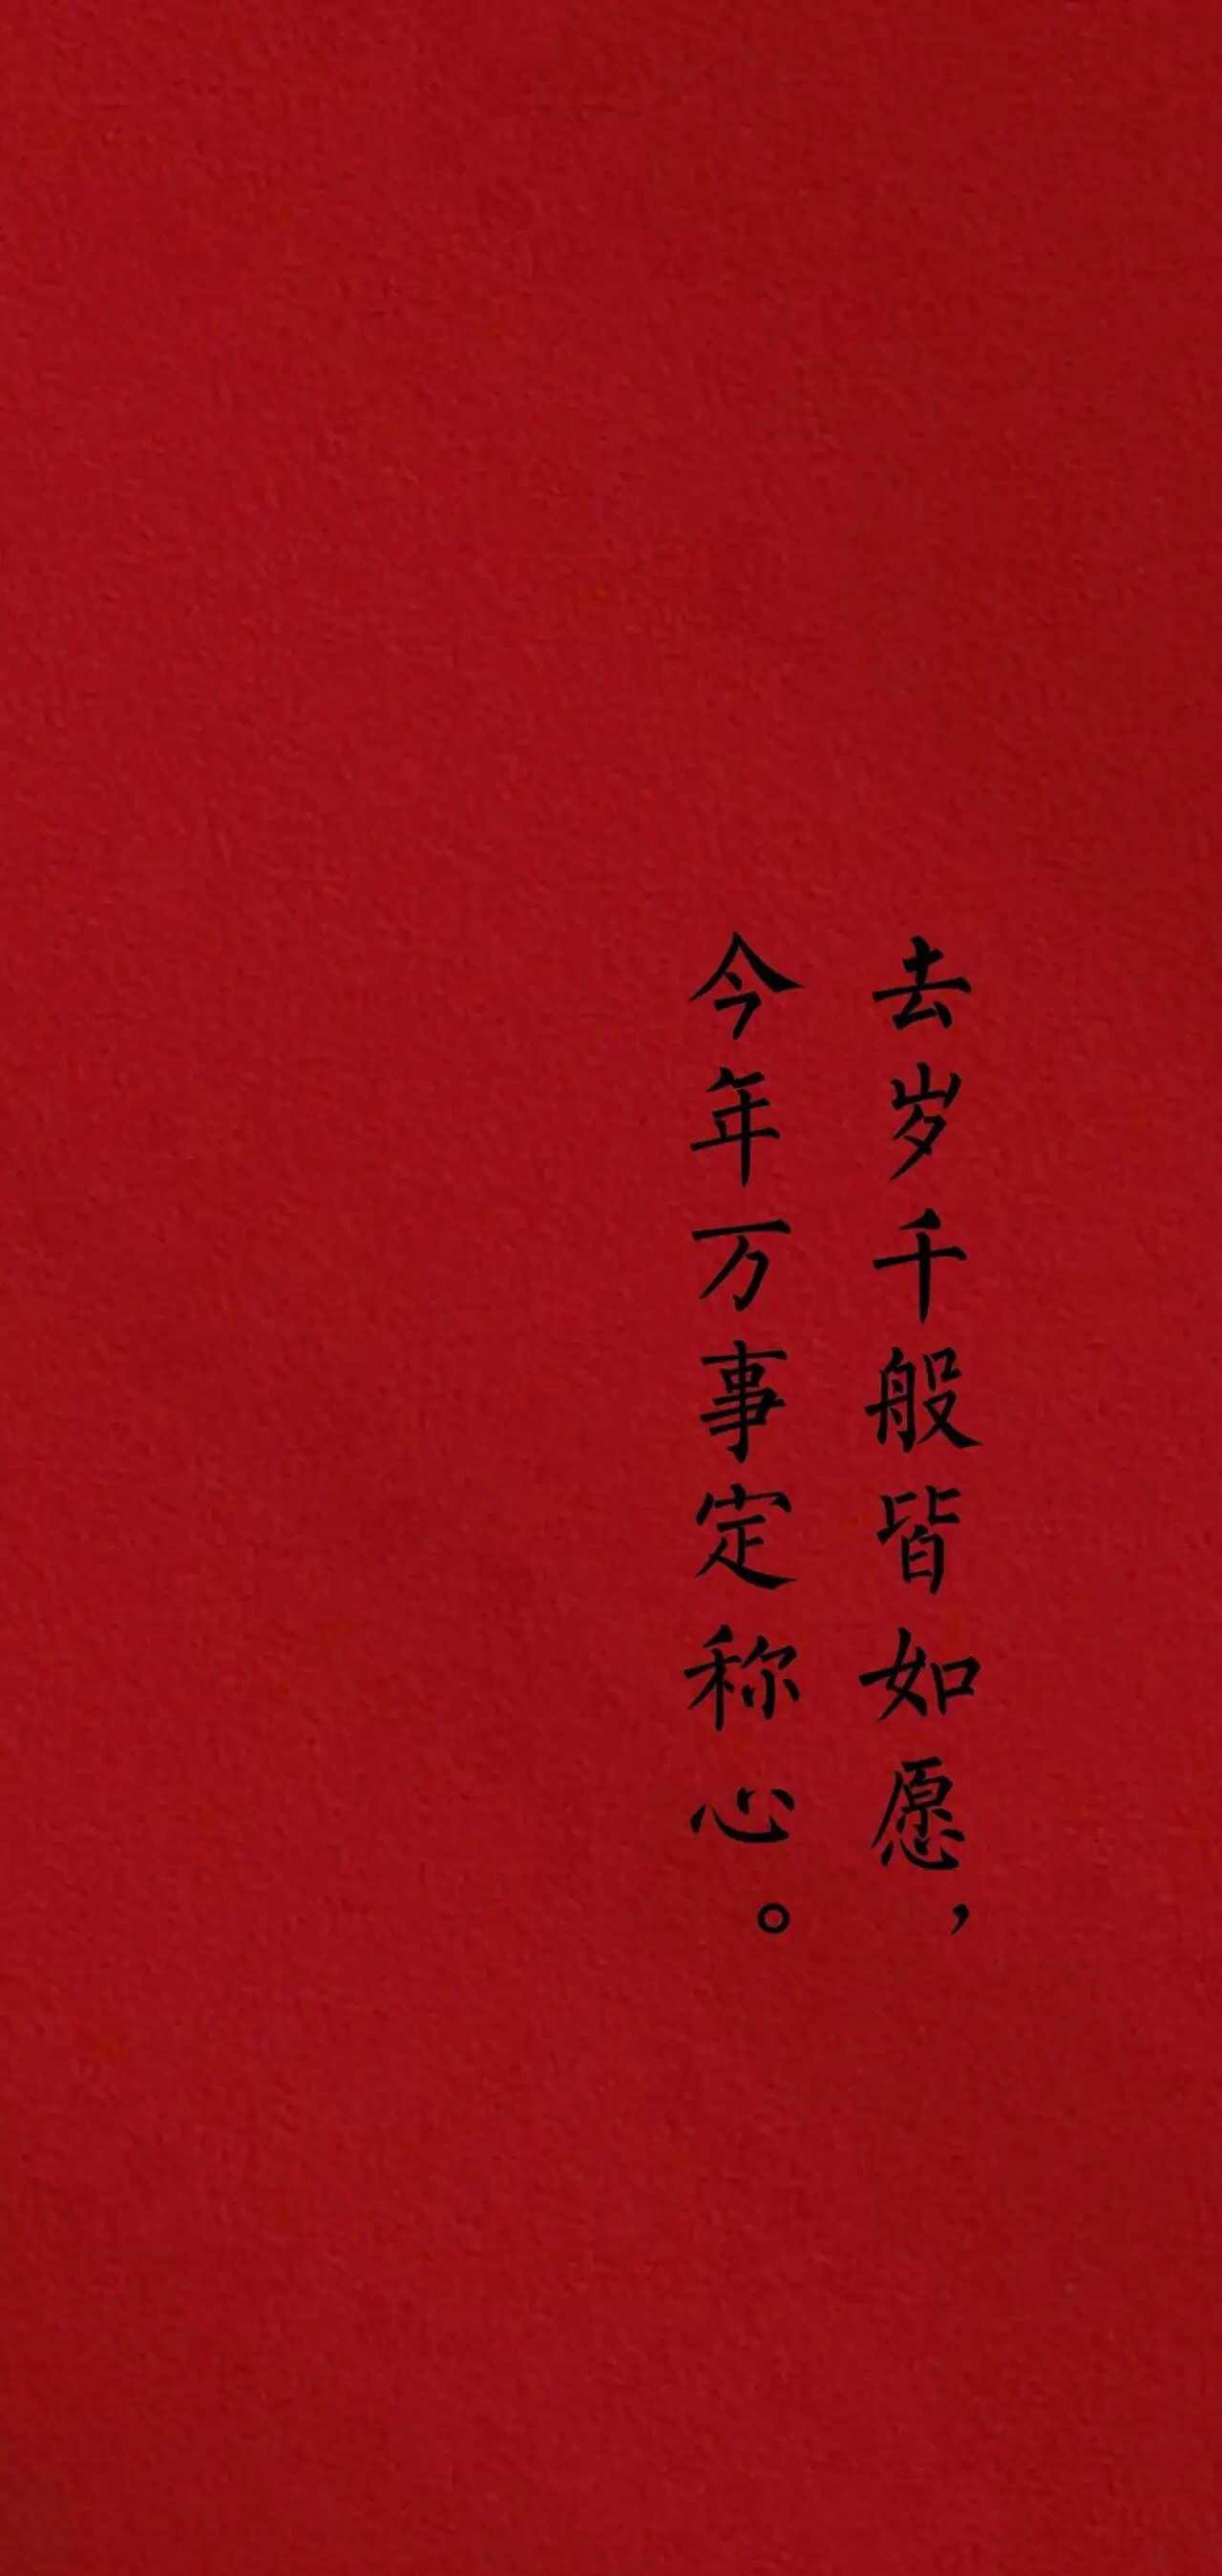 去岁千般皆如愿，
今年万事定称心。